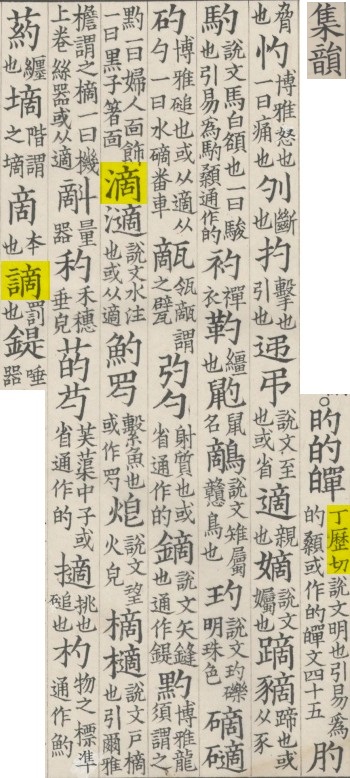 集韻
旳的 丁歷切說文明也引易爲的顙或作的文四十五 肑
脅也 忇 博雅怒也一曰痛也 刌 斷也 扚 擊也引也 迊弔 說文至也或省 適 親也 嫡 說文孎也 蹢豴 蹄也或从豕
馰 說文馬白頟也一曰駿也引易爲馰顙通作的 袀 禪衣 靮 韁也 䶂 鼠名 鸐 說文雉屬戇鳥也 玓 說文玓瓅明珠色 碻磾
䂆 博雅磓也或从適从勺一曰水碓番車 甋 瓴甋謂之甓 弡勺 射質也或省通作的 鏑 說文矢鏠也通作鍉 黓 博雅龍須謂之
黓一曰婦人面飾一曰黑子箸面 滴 說文水注也或从適 魡罞 繫魚也或作罞 炮 火皃 樀 說文戶樀也引爾雅
檐謂之樀一曰機上卷絲器或从適 㪷 量器 䄪 禾穗垂皃 菂芍 芙蕖中子或省通作的 摘 挑也磓也 杓 物之標準通作魡
葯 纏也 墑 階謂之墑 啇 本也 謫 罰也 鍉 唾器